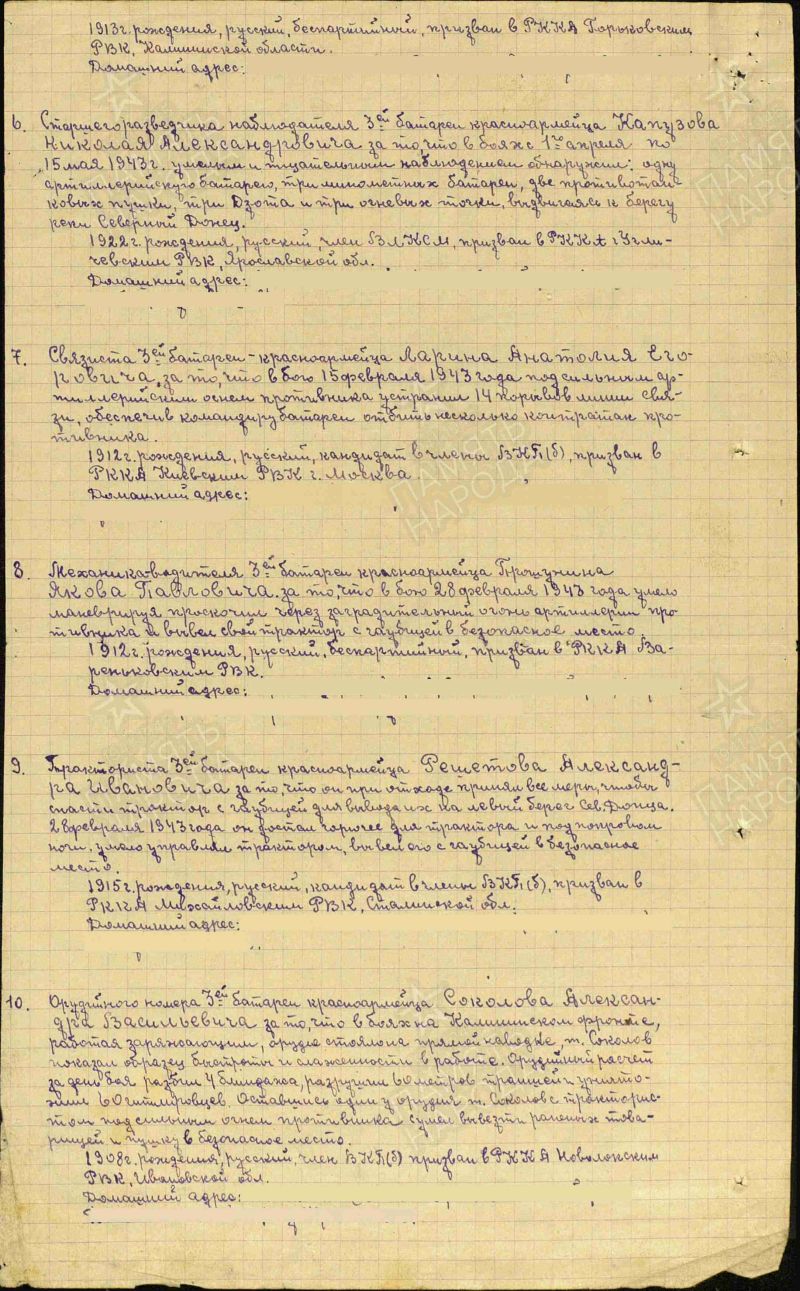 1913 г. рождения, русский, беспартийный, призван в РККА Горьковским
РВК, Калининской области.
Домашний адрес:
6. Старшего разведчика наблюдателя 3ей батареи красноармейца Капузова
Николая Александровича за то, что в боях с 1го апреля по
15 мая 1943 г. умелым и тщательным наблюдением обнаружил: одну
артиллерийскую батарею, три минометных батареи, две противотан-
ковых пушки, три Дзота и три огневых точки, выдвигаясь к берегу
реки Северный Донец.
1922 г. рождения, русский, член ВЛКСМ, призван в РККА Угли-
чевским РВК, Ярославской обл.
Домашний адрес:
7. Связиста 3ей батареи - красноармейца Ларина Анатолия Его-
ровича, за то, что в бою 15 февраля 1943 года под сильным ар-
тиллерийским огнем противника устранил 14 порывов линии свя-
зи, обеспечив командиру батареи отбить несколько контратак про-
тивника.
1912 г. рождения, русский, кандидат в члены ВКП(б), призван в
РККА Киевским РВК г. Москва.
Домашний адрес:
8. Механика-водителя 3ей батареи красноармейца
Якова Павловича, за то, что в бою 28 февраля 1943 года умело
маневрируя проскочил через заградительный огонь артиллерии про-
тивника и вывел свой трактор с гаубицей в безопасное место.
1912 г. рождения, русский, беспартийный, призван в РККА Ва-
реньковским РВК.
Домашний адрес:
9. Тракториста 3ей батареи красноармейца Решетова Александ-
ра Ивановича за то, что он при отходе принял все меры, чтобы
спасти трактор с гаубицей для вывода их на левый берег Сев. Донца.
28 февраля 1943 года он достал горючее для трактора и под покровом
ночи, умело управляя трактором, вывел его с гаубицей в безопасное
место.
1915 г. рождения, русский, кандидат в члены ВКП(б), призван в
РККА Михайловским РВК, Сталинской обл.
Домашний адрес:
10. Орудийного номера 3ей батареи красноармейца Соколова Алексан-
дра Васильевича за то, что в боях на Калининском фронте,
работая заряжающим, орудие стояло на прямой наводке, т. Соколов
показал образец быстроты и слаженности в работе. Орудийный расчет
за день боя разбил 4 блиндажа, разрушил 60 метров траншей и уничто-
жил 60 гитлеровцев. Оставшись один у орудия т. Соколов с тракторис-
том под сильным огнем противника сумел вывезти раненых това-
рищей и пушку в безопасное место.
1908 г. рождения, русский, член ВКП(б) призван в РККА Новолокским
РВК, Ивановской обл.
Домашний адрес:
ПАМЯТЬ
НАРОДА